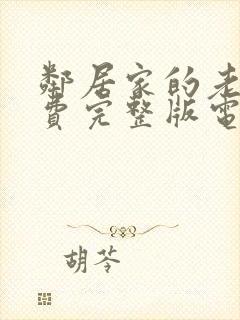 鄰居家的老
費完整版電
胡苓